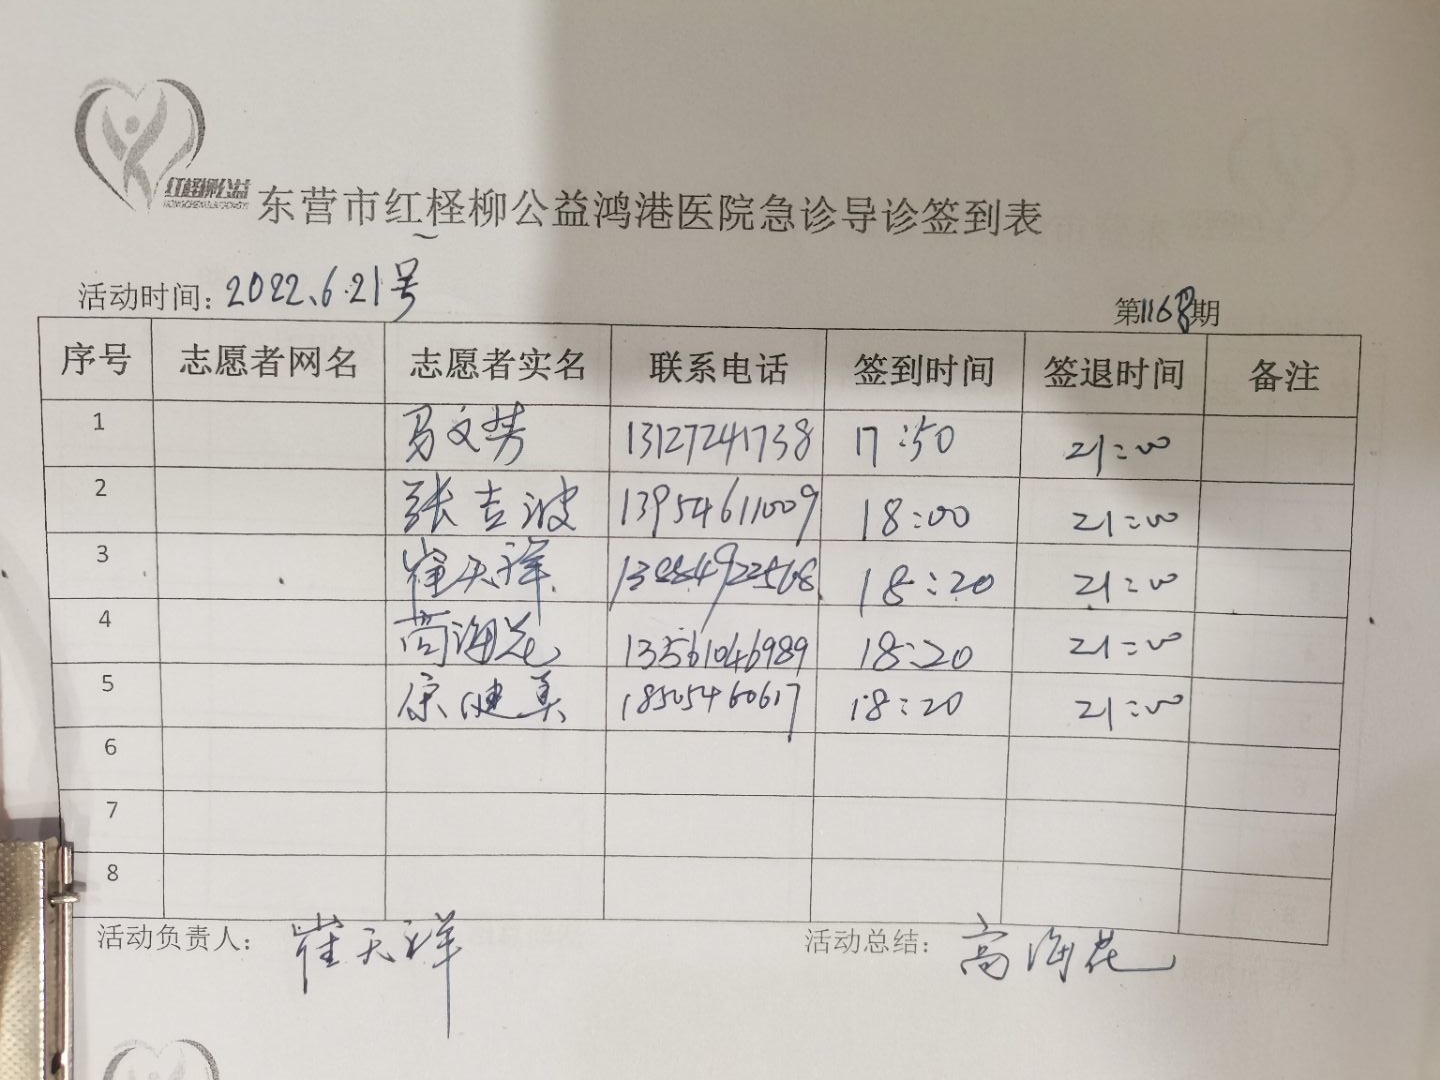 红柽柳公益
东营市红柽柳公益鸿港医院急诊导诊签到表
活动时间：2022.6.21号
第1168期
序号 志愿者网名 志愿者实名 联系电话 签到时间 签退时间 备注
1 马文梦 13127241738 17:50 21:00
2 张吉波 13954611009 18:00 21:00
3 崔天祥 18:20 21:00
4 高海花 13561046989 18:20 21:00
5 康健美 18505460617 18:20 21:00
6
7
8
活动负责人：崔天祥 活动总结：高海花